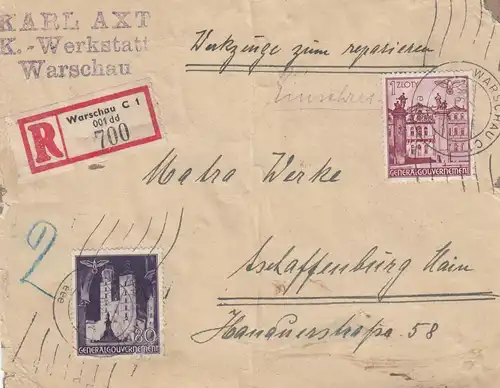 KARL AXT
K.-Werkstatt
Warschau
Werkzeuge zum reparieren
Einschreiben
R
Warschau C 1
001 dd
700
1 ZLOTY
GENERALGOUVERNEMENT
WARSCHAU C
Matra Werke
2
Aschaffenburg Main
Hanauerstraße 58
80
GENERALGOUVERNEMENT